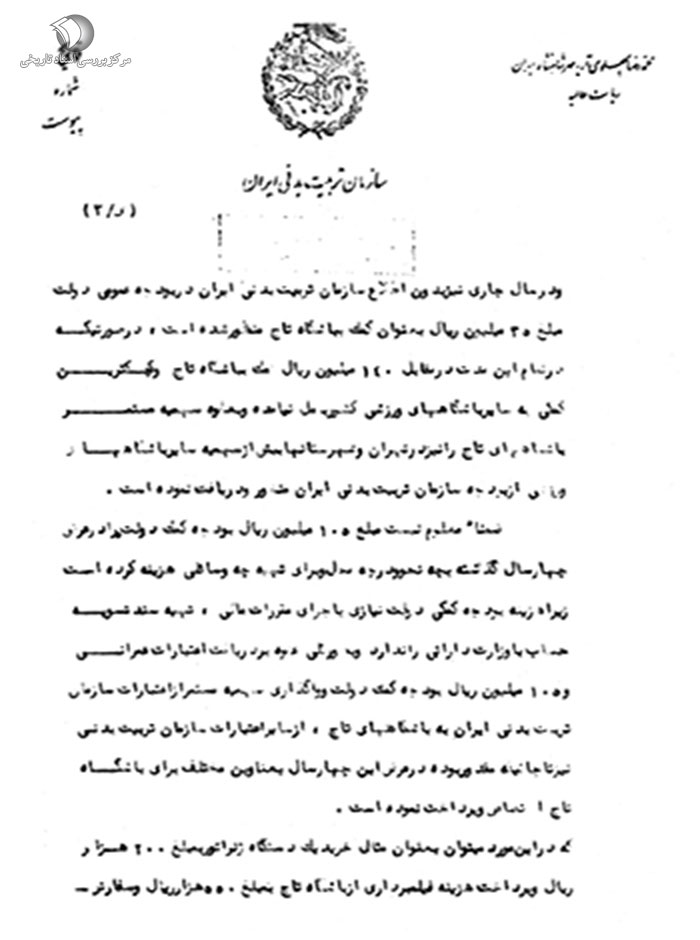 مرکز بررسی اسناد تاریخی
شماره
پیوست
ریاست عالیه
سازمان تربیت بدنی ایران
(د/۳)
و در سال جاری نیز بدون اطلاع سازمان تربیت بدنی ایران در بودجه عمومی دولت
مبلغ ۳۵ میلیون ریال بعنوان کمک بباشگاه تاج منظور شده است ، در صورتیکه
در تمام این مدت در مقابل ۱۴۰ میلیون ریال کمک بباشگاه تاج کوچکتریـــن
کمکی به سایر باشگاههای ورزشی کشور بعمل نیامده و بعلاوه سهمیه مستمـــر
باشگاههای تاج را نیز در تهران و شهرستانها بیش از سهمیه سایر باشگاههـــا
ورزشی از بودجه سازمان تربیت بدنی ایران منظور و دریافت نموده است .
ضمناً معلوم نیست مبلغ ۱۰۵ میلیون ریال بودجه کمک دولت را در عرض
چهار سال گذشته بچه نحو و در چه محل و برای تهیه چه وسائلی هزینه کرده است
زیرا هزینه بودجه کمکی دولت نیازی باجرای مقررات مالی ، تهیه سند تسویـــه
حساب با وزارت دارائی را ندارد دریافت اعتبارات عمرانـــی
و ۱۰۵ میلیون ریال بودجه کمک دولت و واگذاری سهمیه مستمر از اعتبارات سازمان
تربیت بدنی ایران به باشگاههای تاج ، از سایر اعتبارات سازمان تربیت بدنـــی
نیز تا جائیکه مقدور بوده در عرض این چهار سال بعناوین مختلف برای باشگـــاه
تاج اختصاص و پرداخت نموده است .
که در این مورد میتوان بعنوان مثال خرید یک دستگاه ژنراتور بمبلغ ۲۰۰ هـزار
ریال و پرداخت هزینه فیلمبرداری از باشگاه تاج بمبلغ ۵۰۰ هزار ریال و سفارش ـ